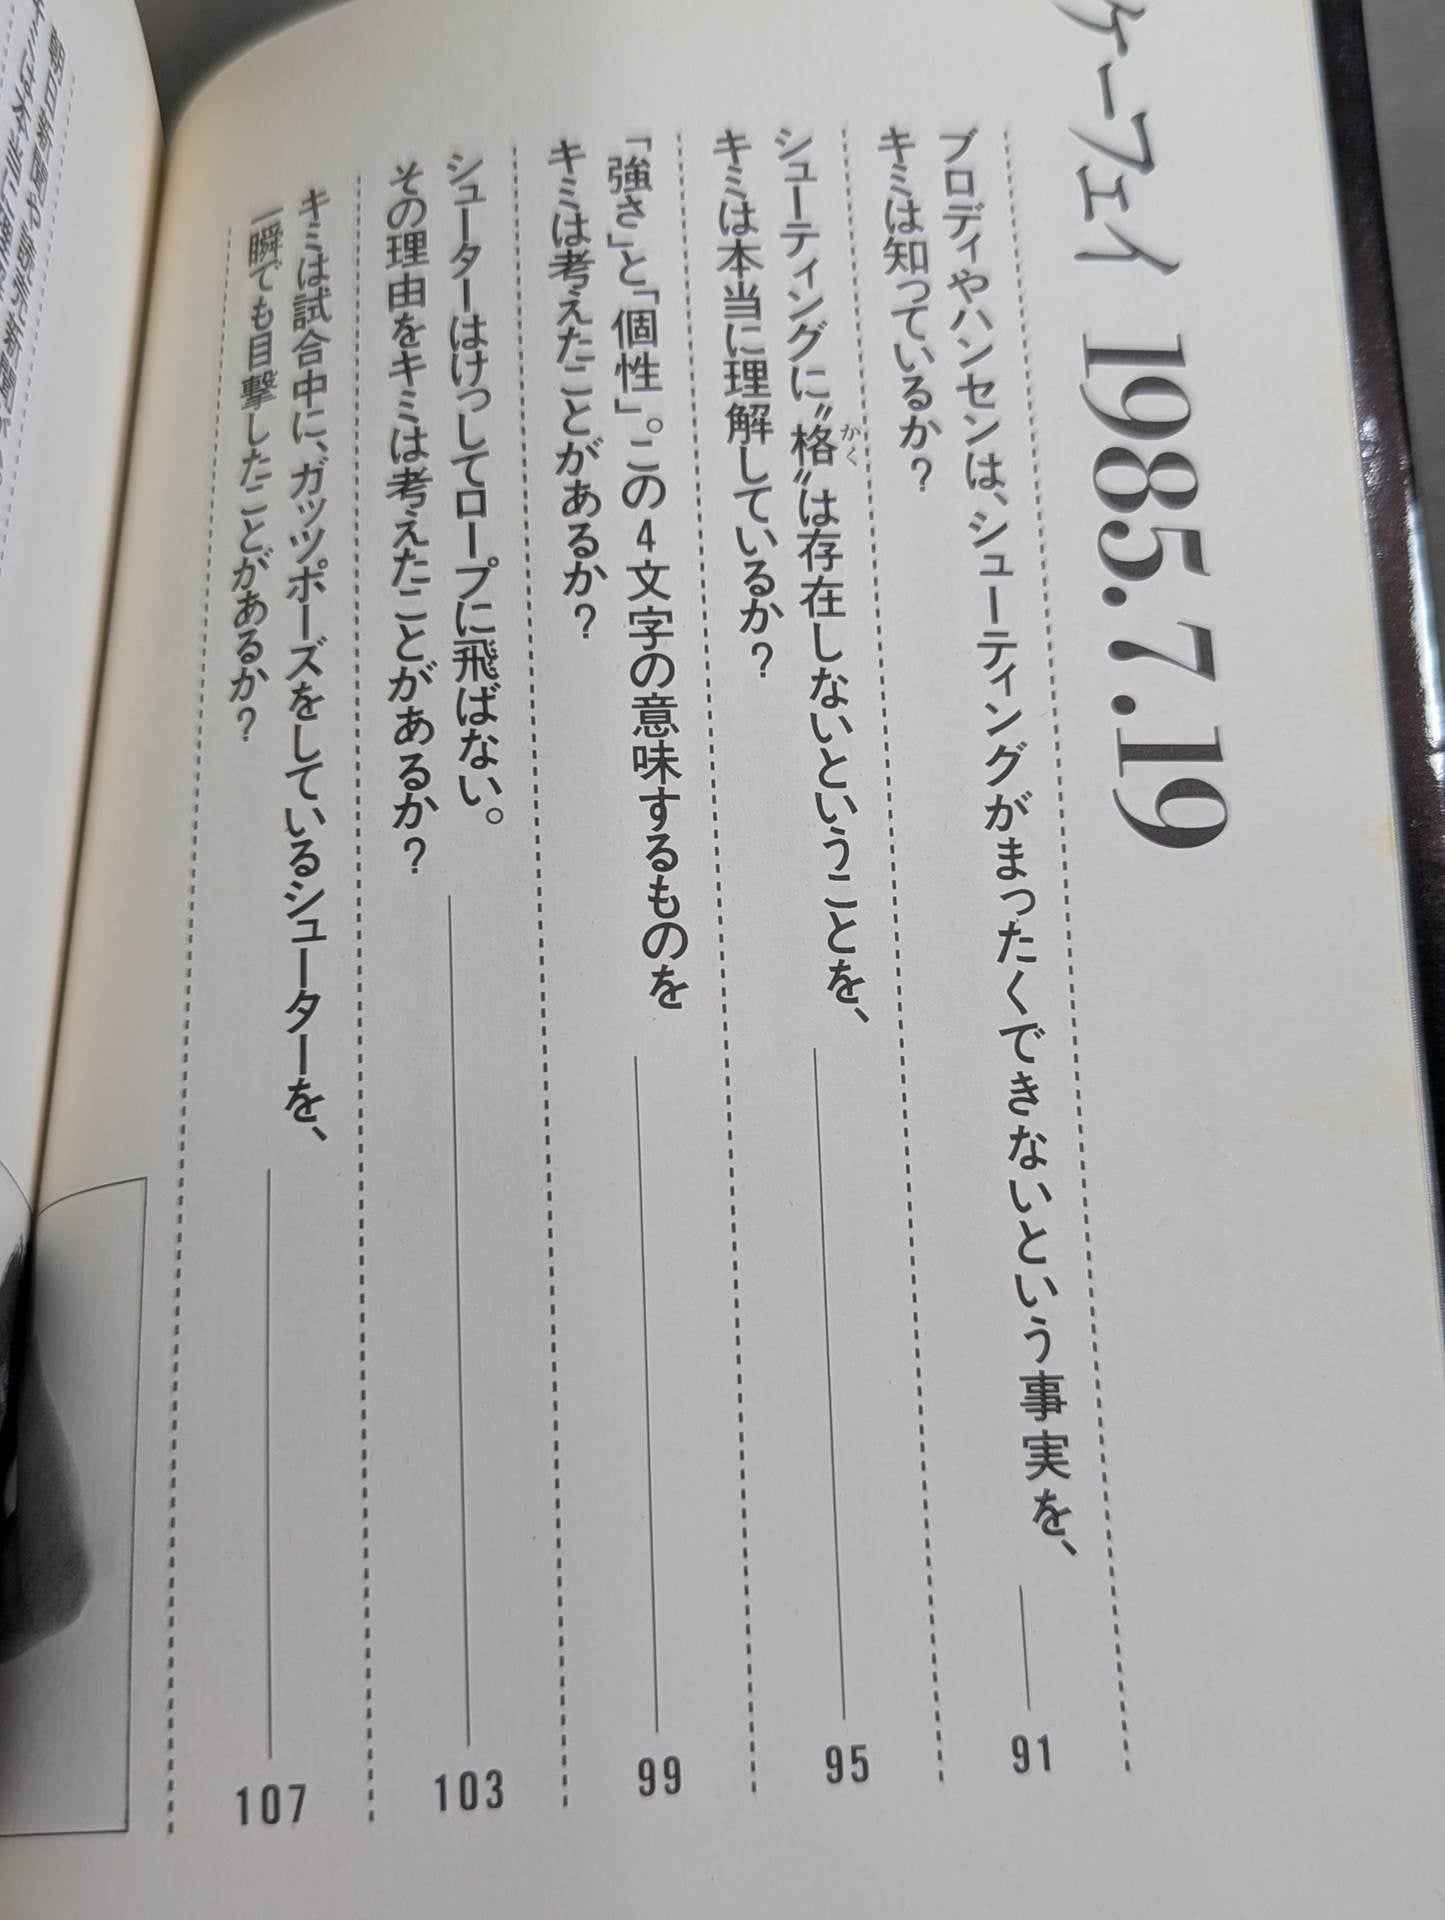 ケーフェイ 1985.7.19
ブロディやハンセンは、シューティングがまったくできないという事実を、
キミは知っているか？ 91
シューティングに〝格〟は存在しないということを、
かく
キミは本当に理解しているか？ 95
「強さ」と「個性」。この4文字の意味するものを
キミは考えたことがあるか？ 99
シューターはけっしてロープに飛ばない。
その理由をキミは考えたことがあるか？ 103
キミは試合中に、ガッツポーズをしているシューターを、
一瞬でも目撃したことがあるか？ 107